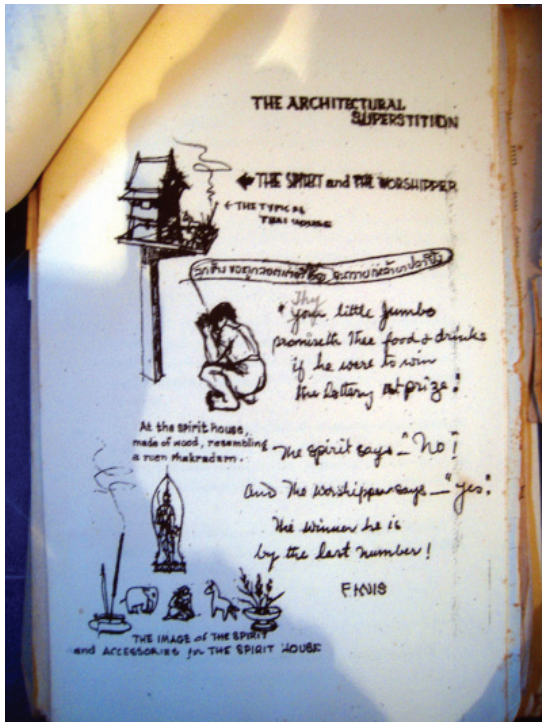 THE ARCHITECTURAL
SUPERSTITION
THE SPIRIT and THE WORSHIPPER
THE TYPICAL
THAI HOUSE
ลูกช้าง ขอถูก จะถวายเหล้ายาปลาปิ้ง
Thy
"your little Jumbo
promiseth Thee food & drinks
if he were to win
the lottery 1st prize."
At the spirit house,
made of wood, resembling
a ruen Phakradam.
The spirit says - "No!"
And The worshipper says - "yes"
The winner he is
by the last number!
FINIS
THE IMAGE of THE SPIRIT
and ACCESSORIES for THE SPIRIT HOUSE